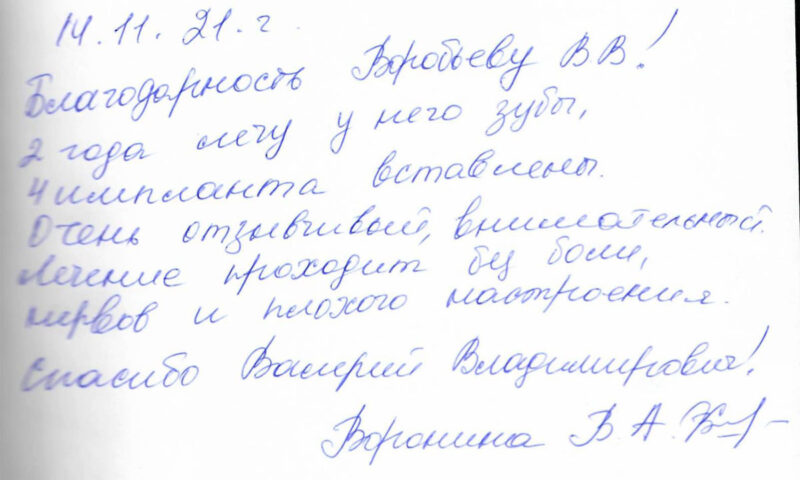 14.11.21.г.
Благодарность Воробьеву В В!
2 года лечу у него зубы,
4 импланта вставлены.
Очень отзывчивый, внимательный.
Лечение проходит без боли,
нервов и плохого настроения.
Спасибо Валерий Владимирович!
Воронина В А.